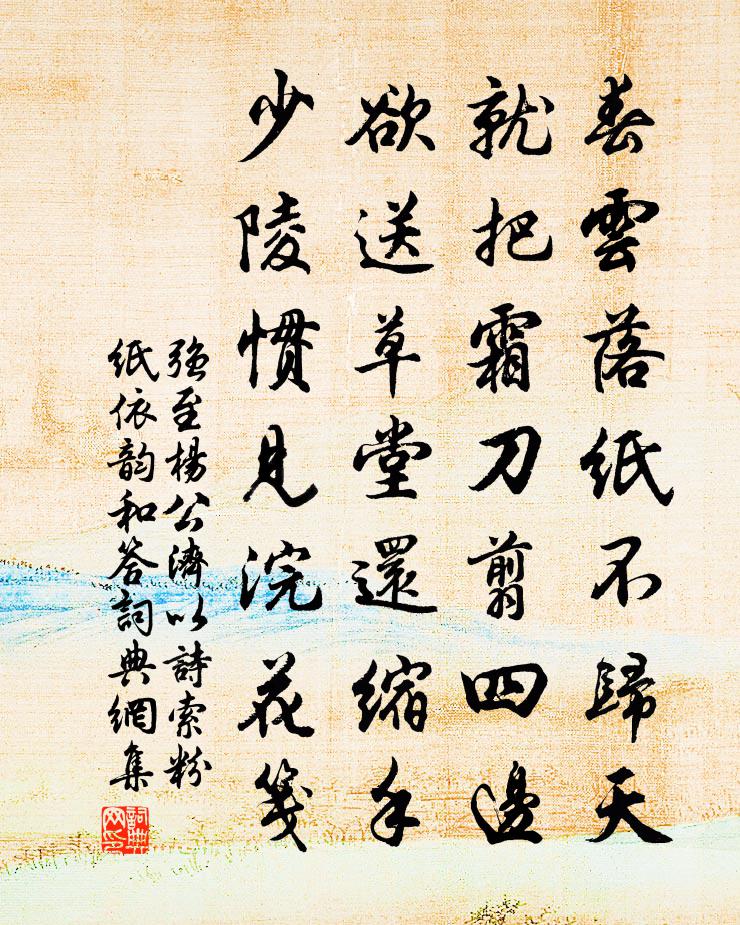 春雲落紙不歸天
就把霜刀剪四邊
欲送草堂還縮手
少陵慣見浣花箋
強至楊公濟以詩索粉
紙依韵和答詞典網集
詞典網印